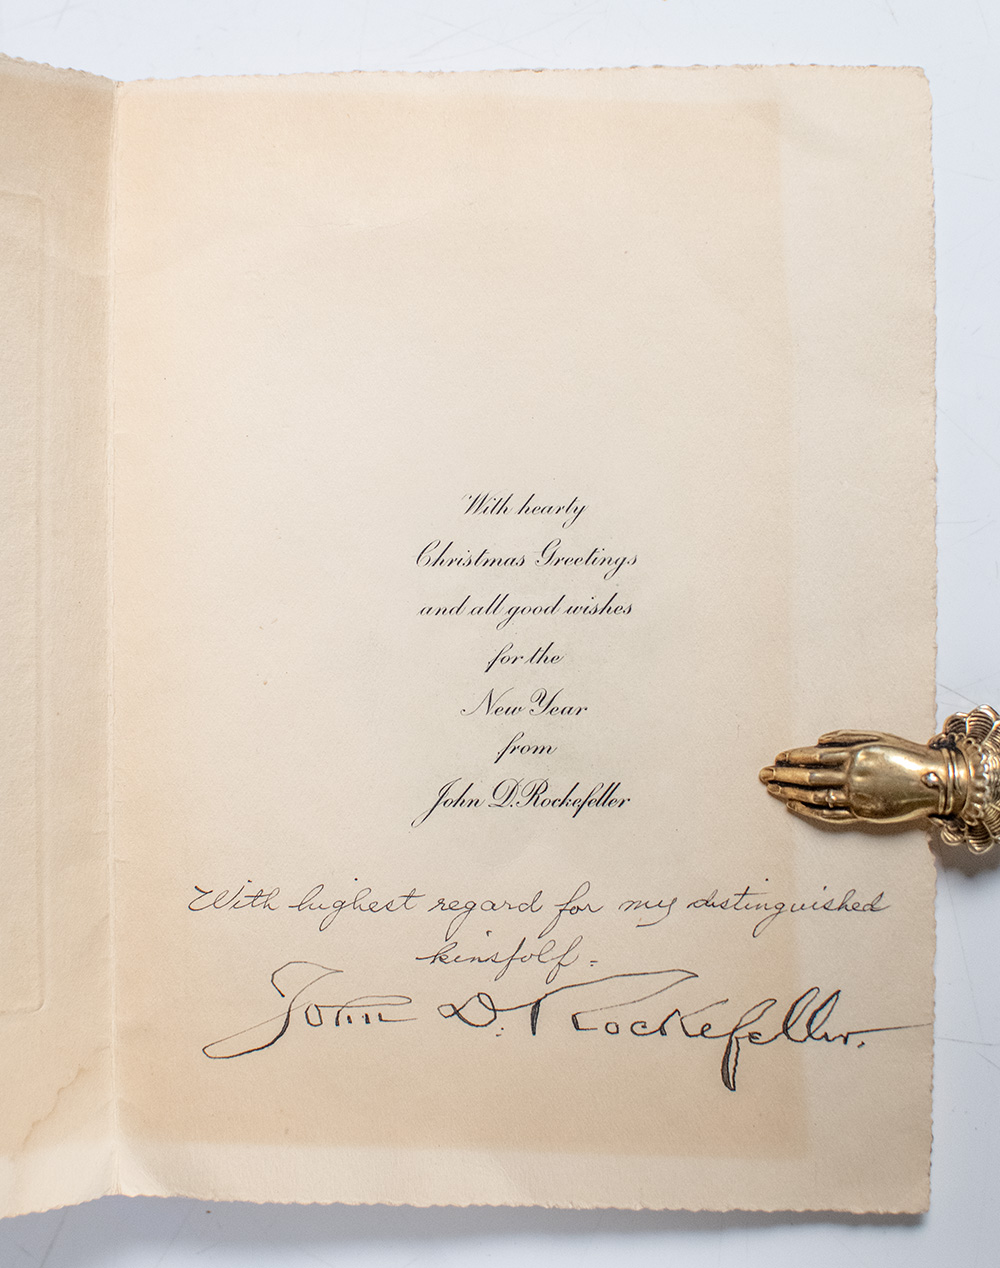 With hearty
Christmas Greetings
and all good wishes
for the
New Year
from
John D. Rockefeller
With highest regard for my distinguished
kinsfolf.
John D. Rockefeller.